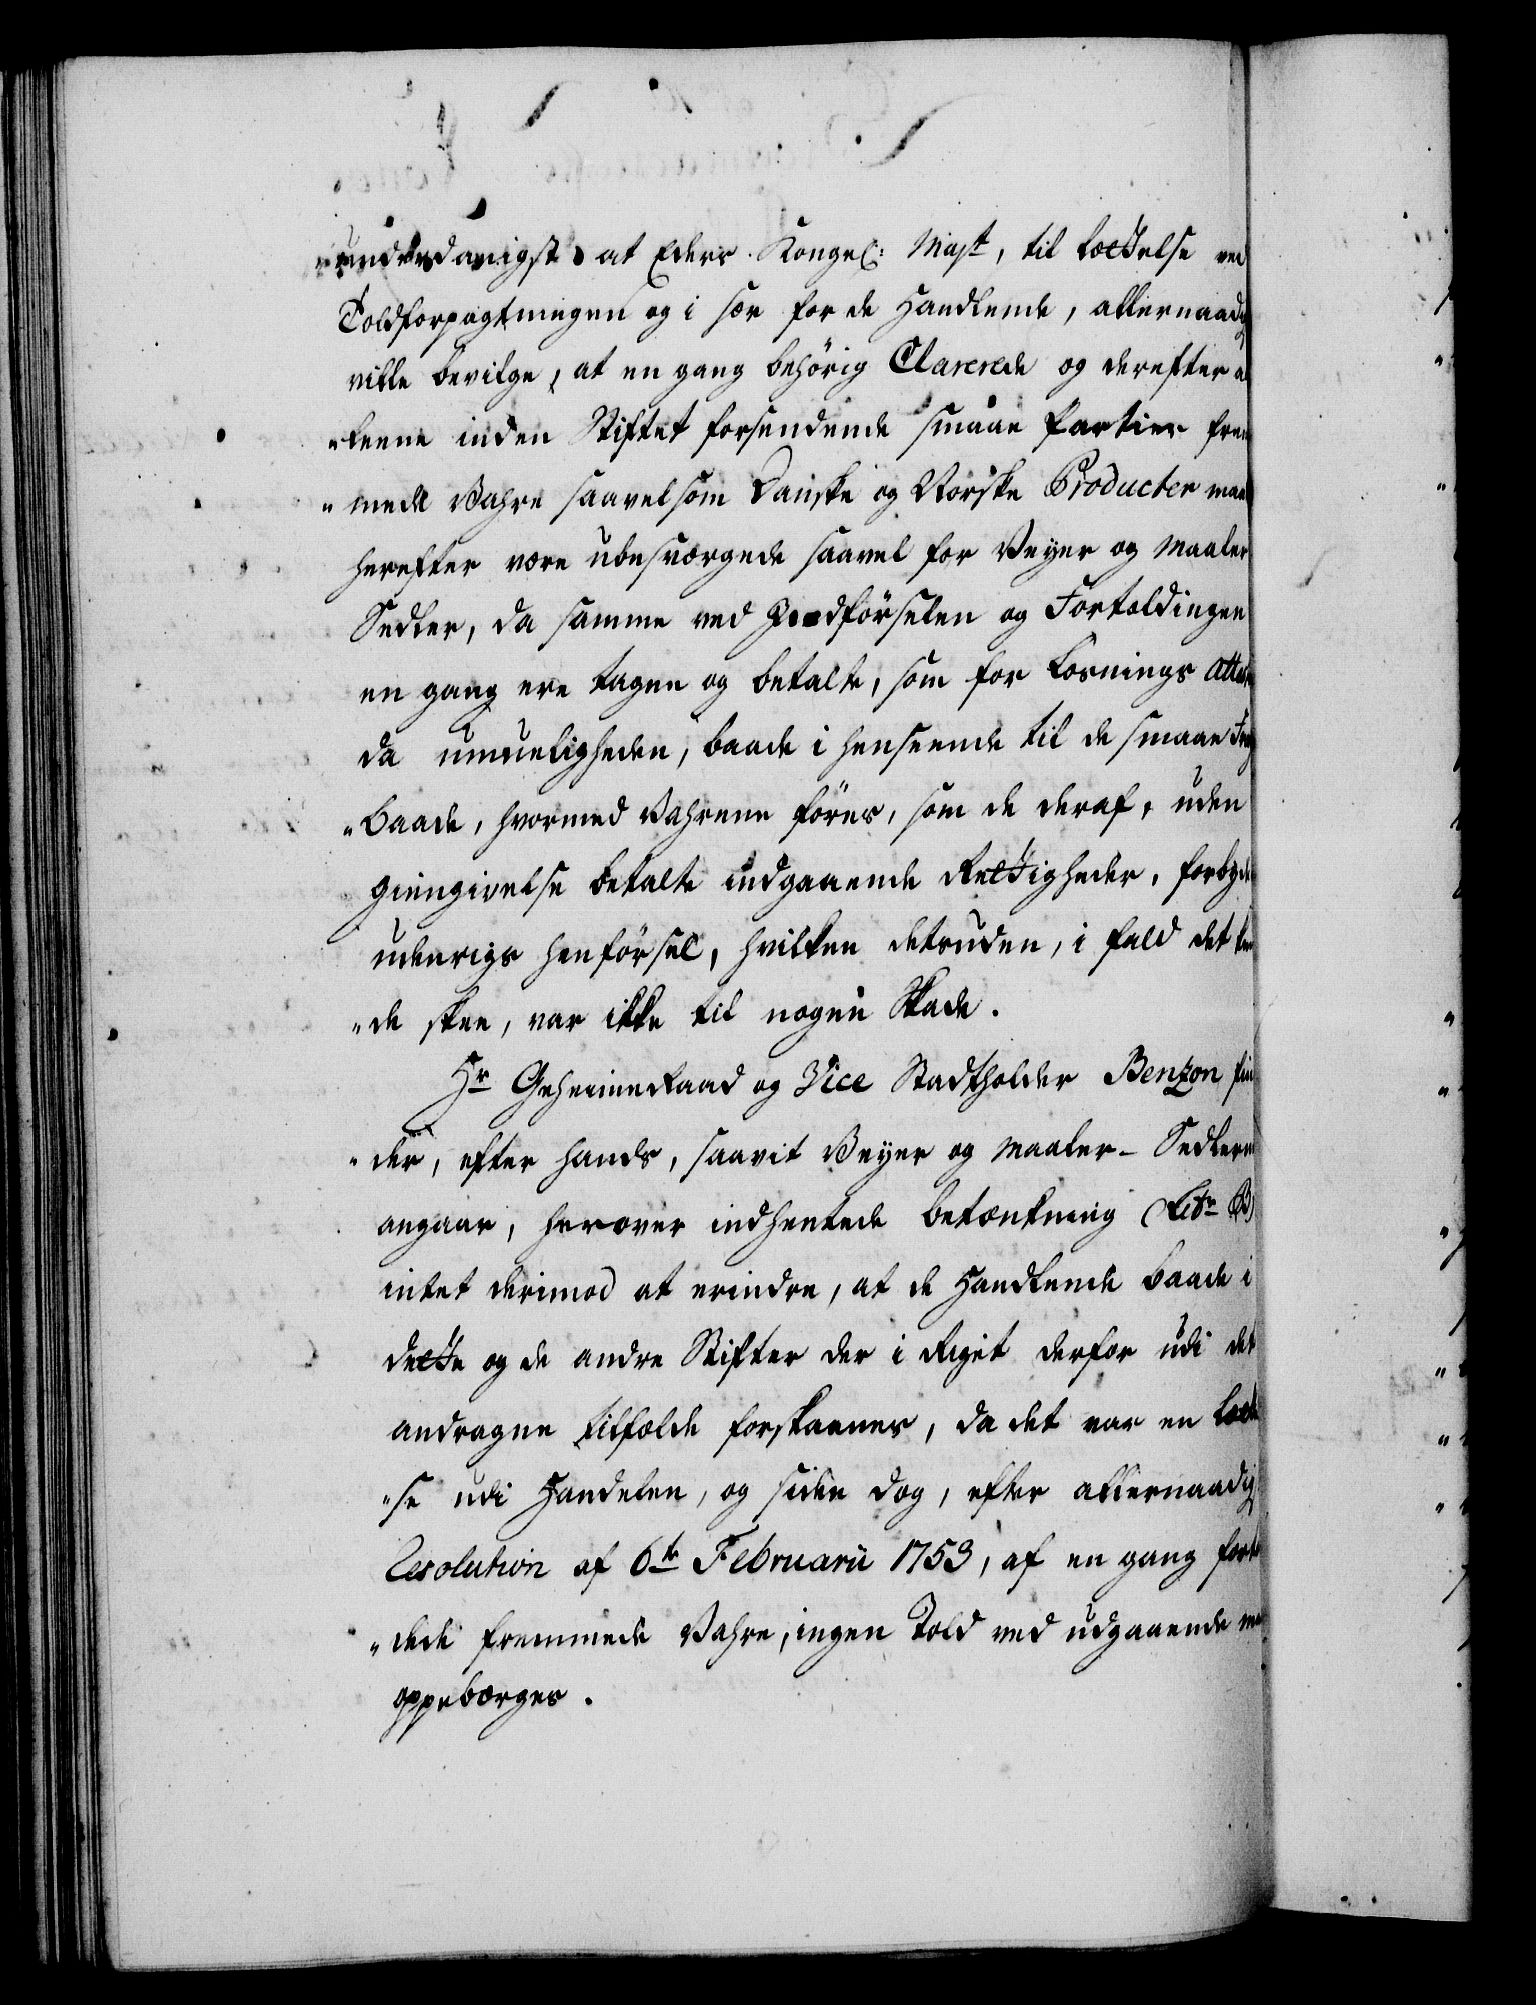 underdanigst at Eders Kongel: Majt, til Lættelse ved
Toldforpagtningen og i sær for de Handlende, allernaadigst
ville bevilge, at en gang behörig Clarerede og derefter a
"leene inden Stiftet forsendende smaae Partier frem
"mede Vahre saavelsom Danske og Norske Producter maae
herefter være ubesværgede saavel for Veyer og Maaler
Sedler, da samme ved Indförselen og Fortoldingen
en gang ere tagne og betalte, som for Losnings Atte
da umueligheden, baade i henseende til de smaae
"Baade, hvormed Vahrene föres, som de deraf, uden
giengivelse betalte indgaaende Rettigheder, forbyde
udenrigs henförsel, hvilken desuden, i fald det kun
"de skee, var ikke til nogen Skade.
Hr Geheimeraad og Vice Stadtholder Benzon fin
"der, efter hands, saavit Veyer og Maaler-Sedlerne
angaar, herover indhentede betænkning (Litr B)
intet derimod at erindre, at de Handlende baade i
dette og de andre Stifter der i Riget derfor udi det
andragne tilfælde forskaanes, da det var en Lettel
"se udi Handelen, og siden dog, efter allernaadigst
Resolution af 6te Februarii 1753, af en gang fortol
"dede fremmede Vahre, ingen Told ved udgaaende maae
oppebærges.